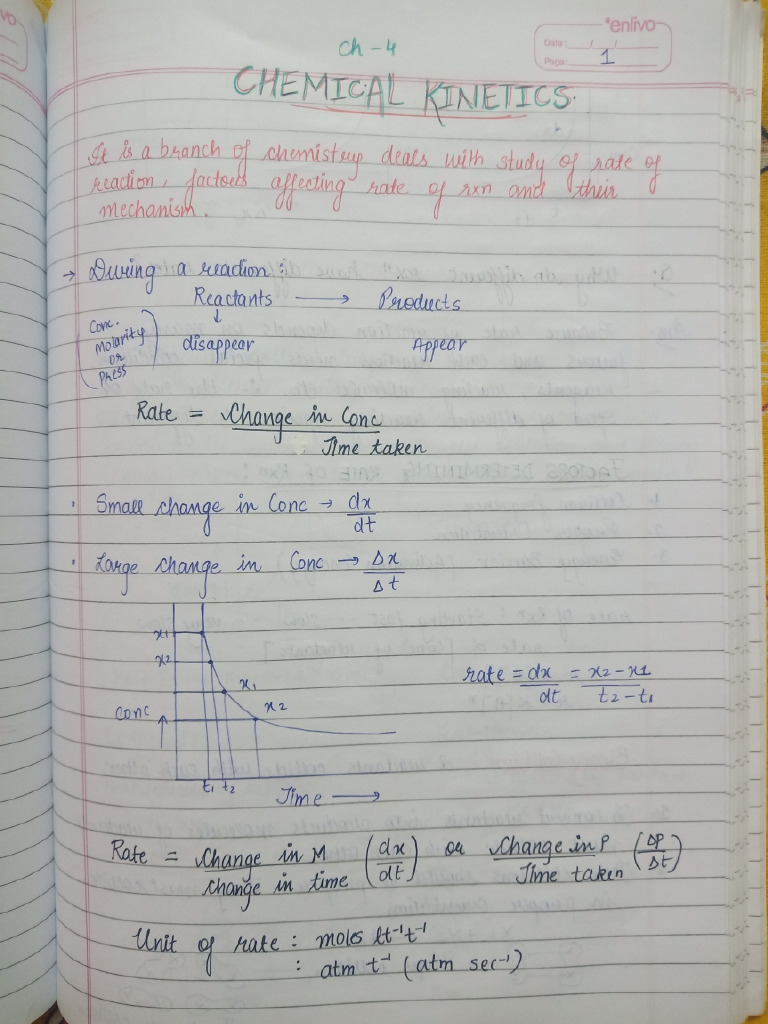 enlivo
Date: / /
Page: 1
Ch - 4
CHEMICAL KINETICS.
It is a branch of chemistry deals with study of rate of
reaction, factors affecting rate of rxn and their
mechanism.
→ During a reaction :
Reactants → Products
↓
(Conc. Molarity or Press)
disappear Appear
Rate = Change in Conc
Time taken
· Small change in Conc → dx
dt
· Large change in Conc → Δx
Δt
x1
x2
x1
x2
Conc ↑
t1 t2
Time →
rate = dx = x2 - x1
dt t2 - t1
Rate = Change in M (dx/dt) or Change in P (ΔP/Δt)
change in time Time taken
Unit of rate : moles lt⁻¹t⁻¹
: atm t⁻¹ (atm sec⁻¹)